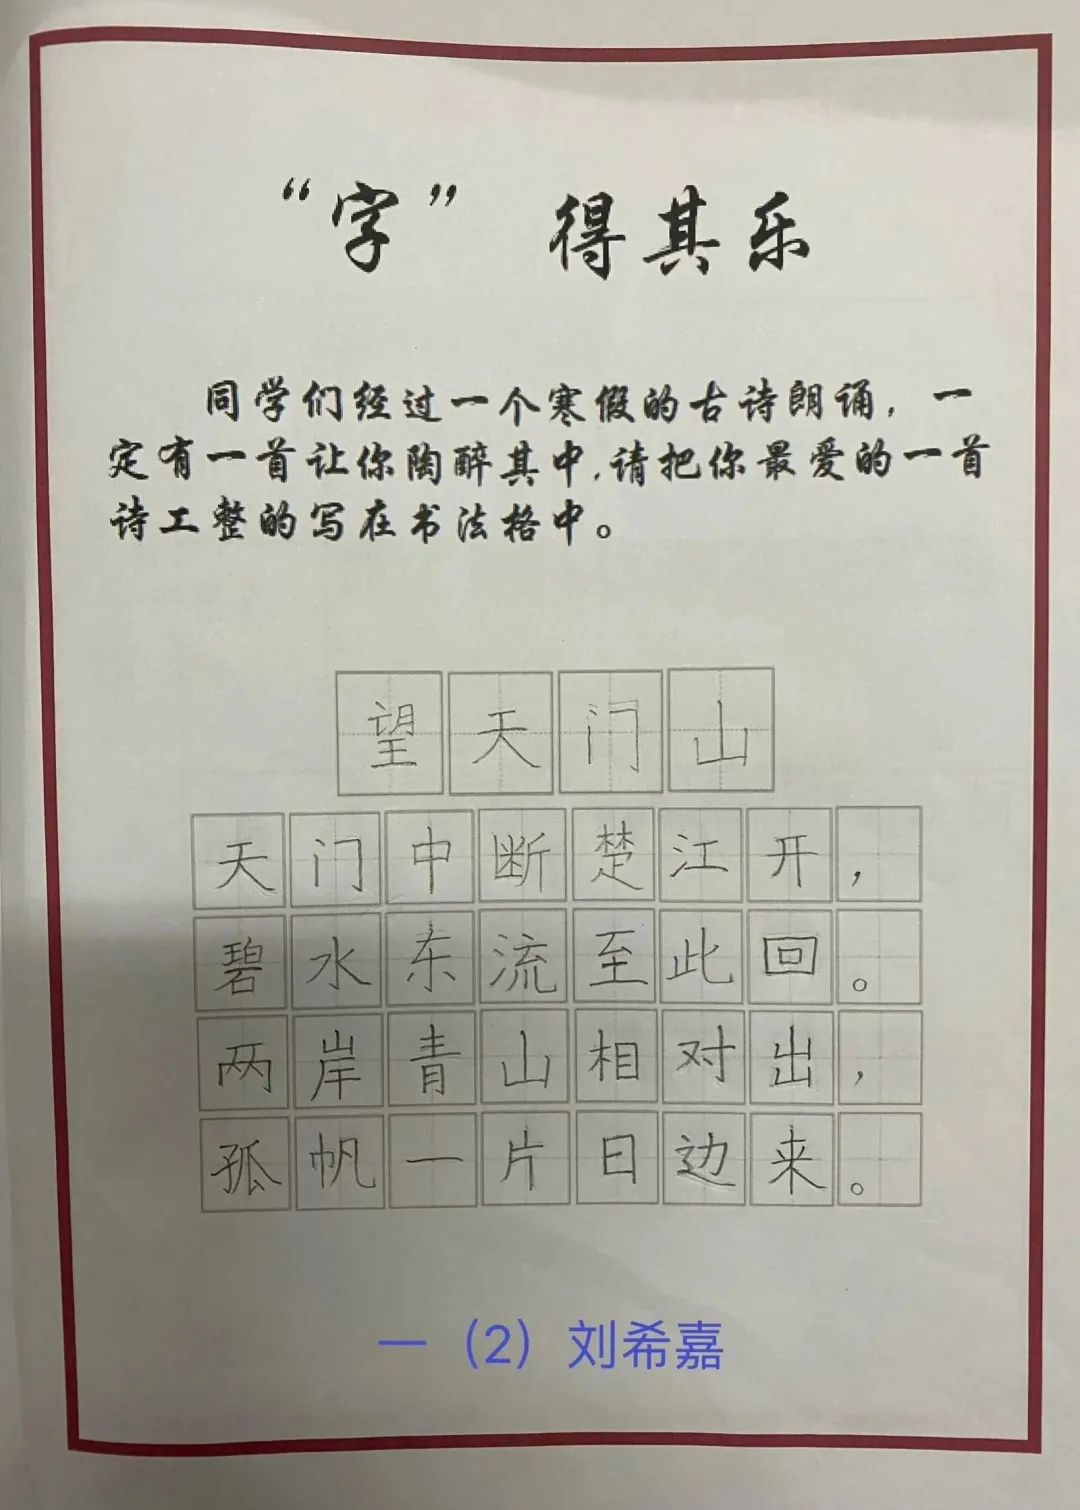 “字” 得其乐
同学们经过一个寒假的古诗朗诵，一
定有一首让你陶醉其中,请把你最爱的一首
诗工整的写在书法格中。
望天门山
天门中断楚江开，
碧水东流至此回。
两岸青山相对出，
孤帆一片日边来。
一（2）刘希嘉